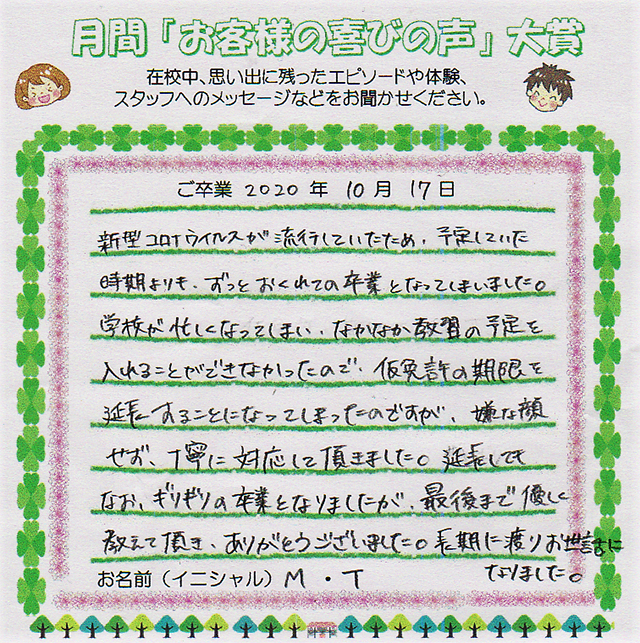 月間「お客様の喜びの声」大賞
在校中、思い出に残ったエピソードや体験、
スタッフへのメッセージなどをお聞かせください。
ご卒業 2020 年 10 月 17 日
新型コロナウイルスが流行していたため、予定していた
時期よりも、ずっとおくれての卒業となってしまいました。
学校が忙しくなってしまい、なかなか教習の予定を
入れることができなかったので、仮免許の期限を
延長することになってしまったのですが、嫌な顔
せず、丁寧に対応して頂きました。延長しても
なお、ギリギリの卒業となりましたが、最後まで優しく
教えて頂き、ありがとうございました。長期に渡りお世話に
なりました。
お名前(イニシャル) M・T